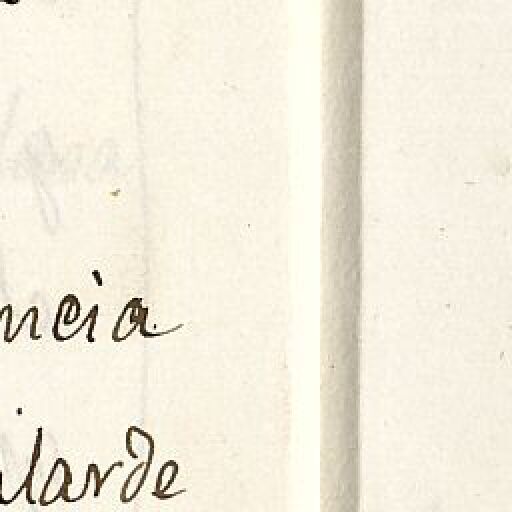 ncia
ilarde